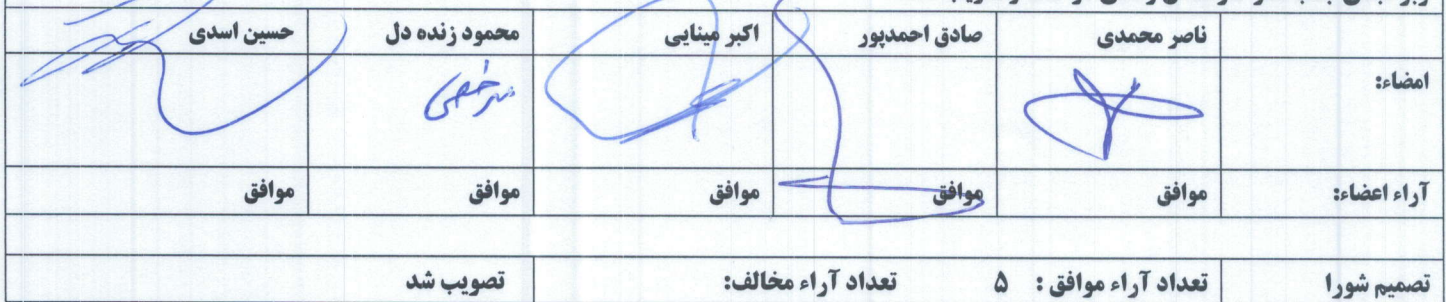 ناصر محمدی صادق احمدپور اکبر مینایی محمود زنده دل حسین اسدی
امضاء:
مرخصی
آراء اعضاء: موافق موافق موافق موافق موافق
تصمیم شورا تعداد آراء موافق : ۵ تعداد آراء مخالف: تصویب شد